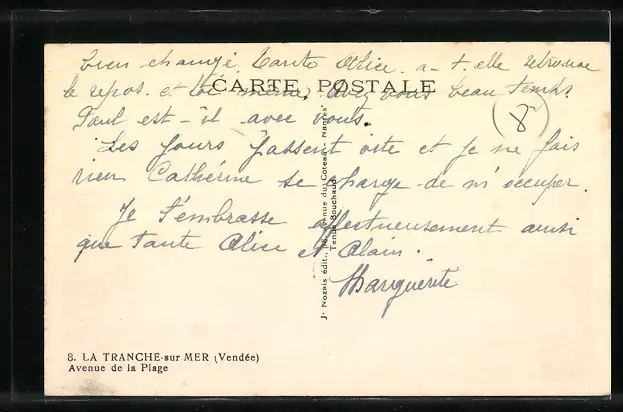 bien changé. Tante Alice a-t-elle retrouvé
le repos. et toi même, avez vous beau temps?
CARTE POSTALE
8
Paul est-il avec vous.
Les jours passent vite et je ne fais
rien Catherine se charge de m'occuper.
Je t'embrasse affectueusement ainsi
que tante Alice et Alain.
Marguerite
J. Nozais édit., Avenue du Coteau - Nantes
Tenue Bouchaud
8. LA TRANCHE-sur MER (Vendée)
Avenue de la Plage